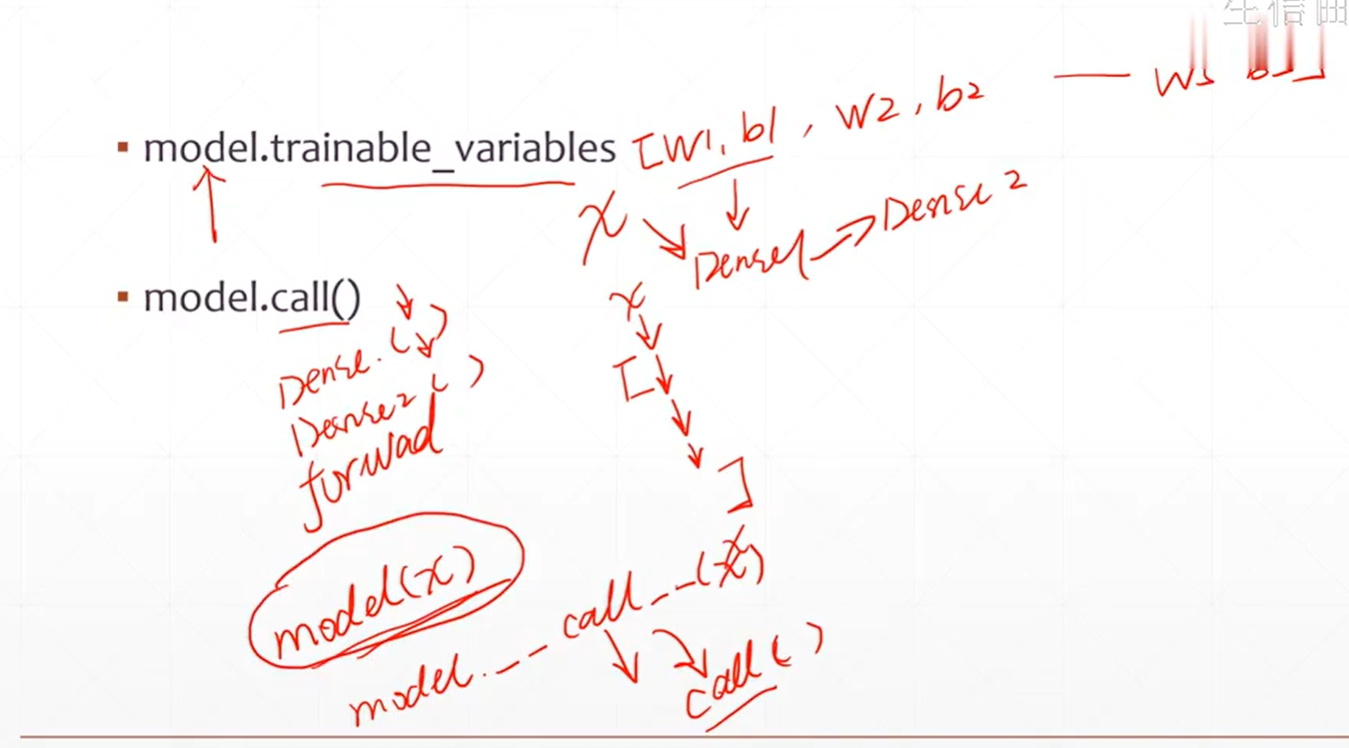 ▪ model.trainable_variables [W1, b1, W2, b2 — W3 b3]
x Dense1 → Dense2
▪ model.call()
x
Dense.( )
[
Dense2( )
forwad
]
model(x)
model.__call__(x)
call()